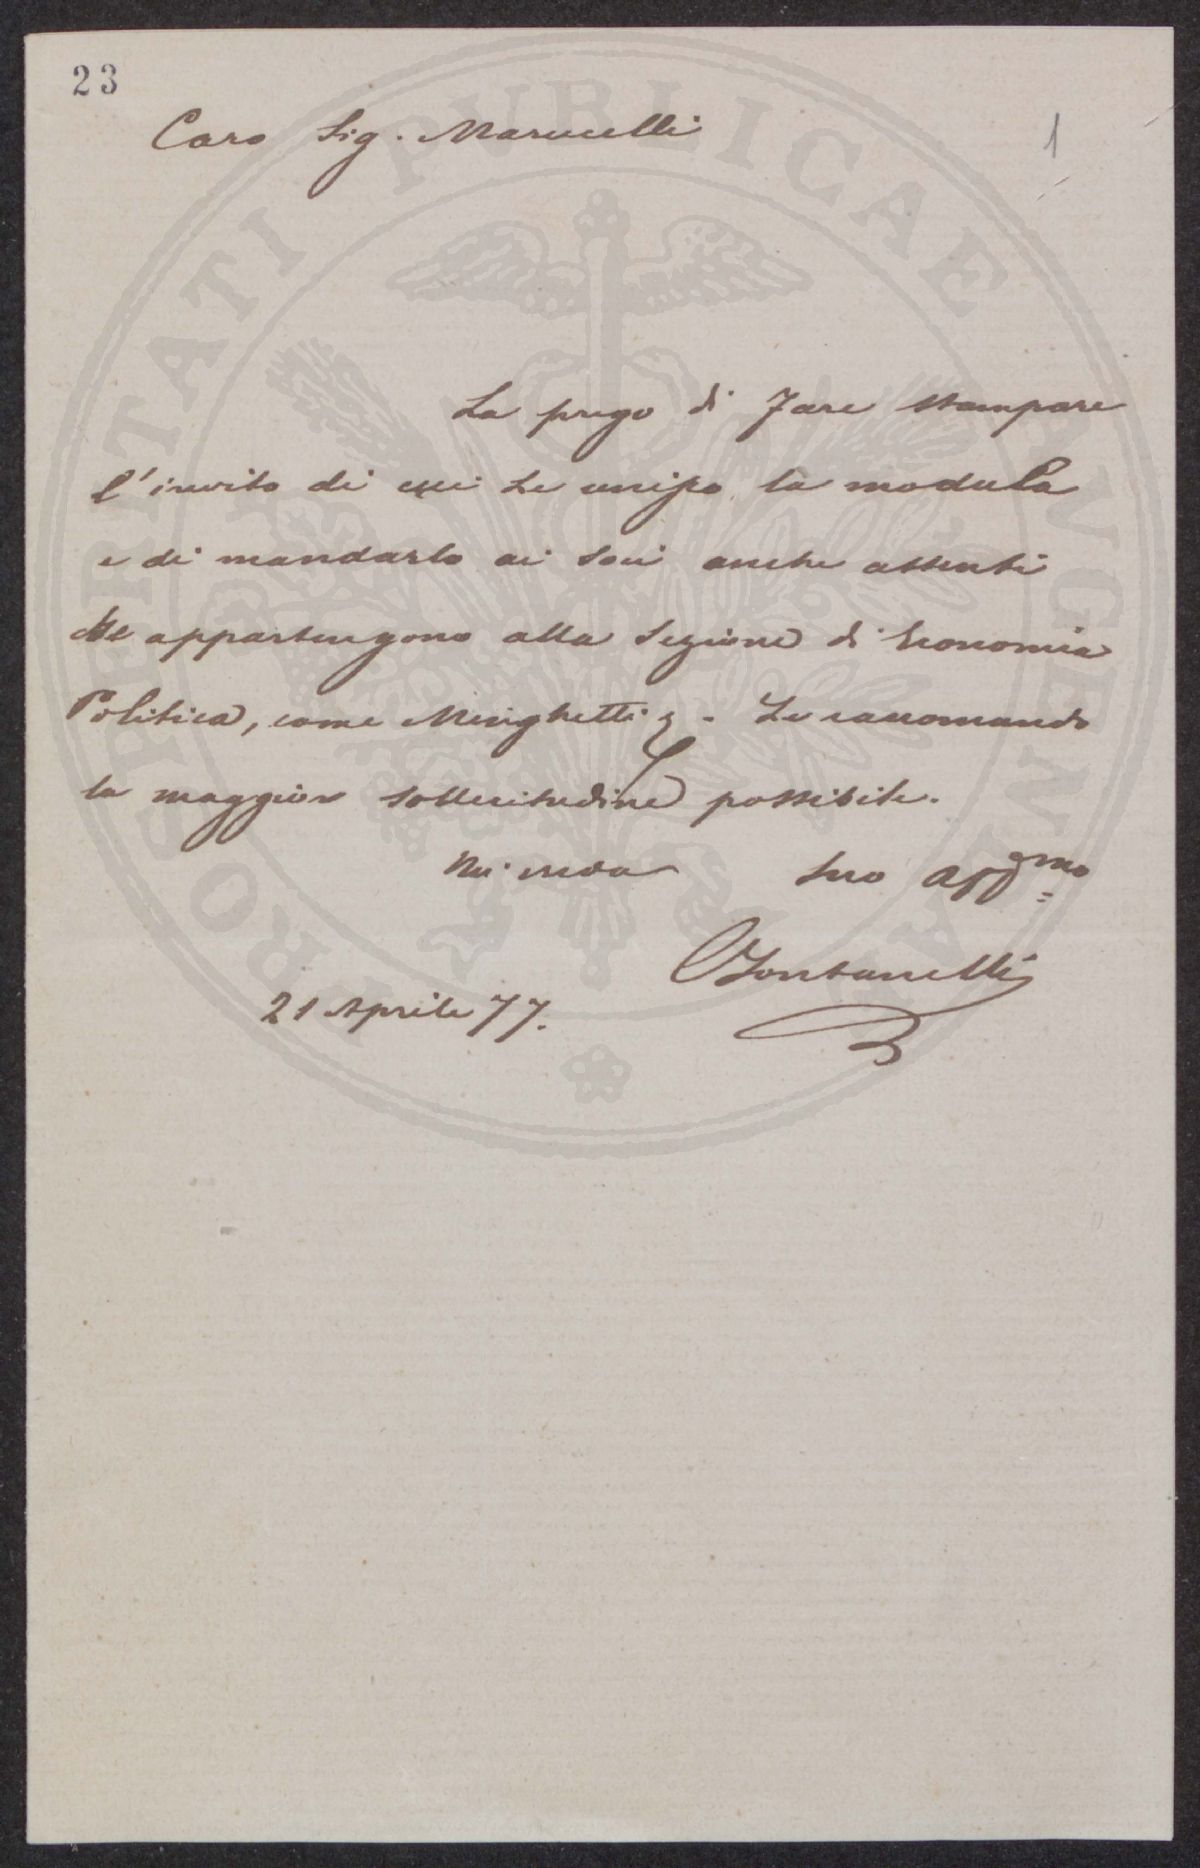 23
1
Caro Sig. Marucelli
La prego di fare stampare
l'invito di cui Le unisco la modula
e di mandarlo ai soci anche assenti
che appartengono alla Sezione di Economia
Politica, come Minghetti - Le raccomando
la maggior sollecitudine possibile.
Mi creda Suo Affmo
CFontanelli
21 Aprile 77.
PROSPERITATI PUBLICAE AUGENDAE